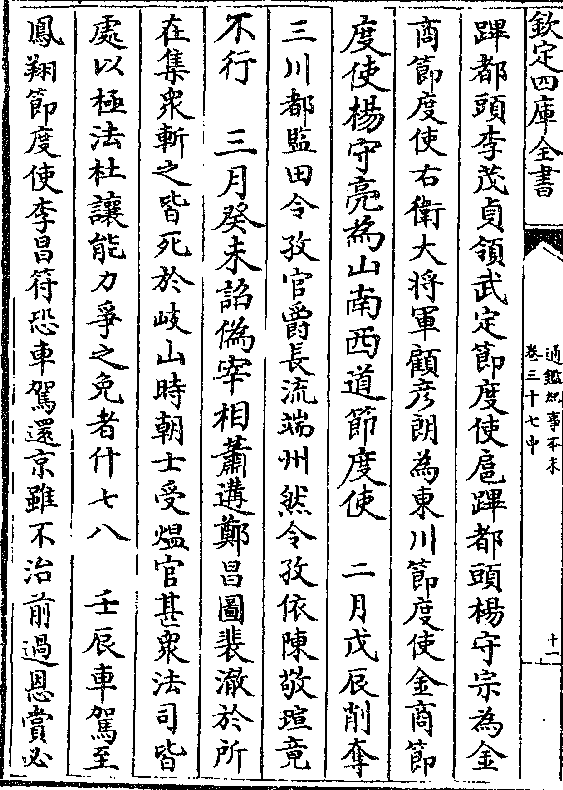 欽定四庫全書
通鑑紀事本末
卷三十七中
十一
蹕都頭李茂貞領武定節度使扈蹕都頭楊守宗為金
商節度使右衛大將軍顧彥朗為東川節度使金商節
度使楊守亮為山南西道節度使　二月戊辰削奪
三川都監田令孜官爵長流端州然令孜依陳敬瑄竟
不行　三月癸未詔偽宰相蕭遘鄭昌圖裴澈於所
在集衆斬之皆死於岐山時朝士受熅官甚衆法司皆
處以極法杜讓能力爭之免者什七八　壬辰車駕至
鳳翔節度使李昌符恐車駕還京雖不治前過恩賞必